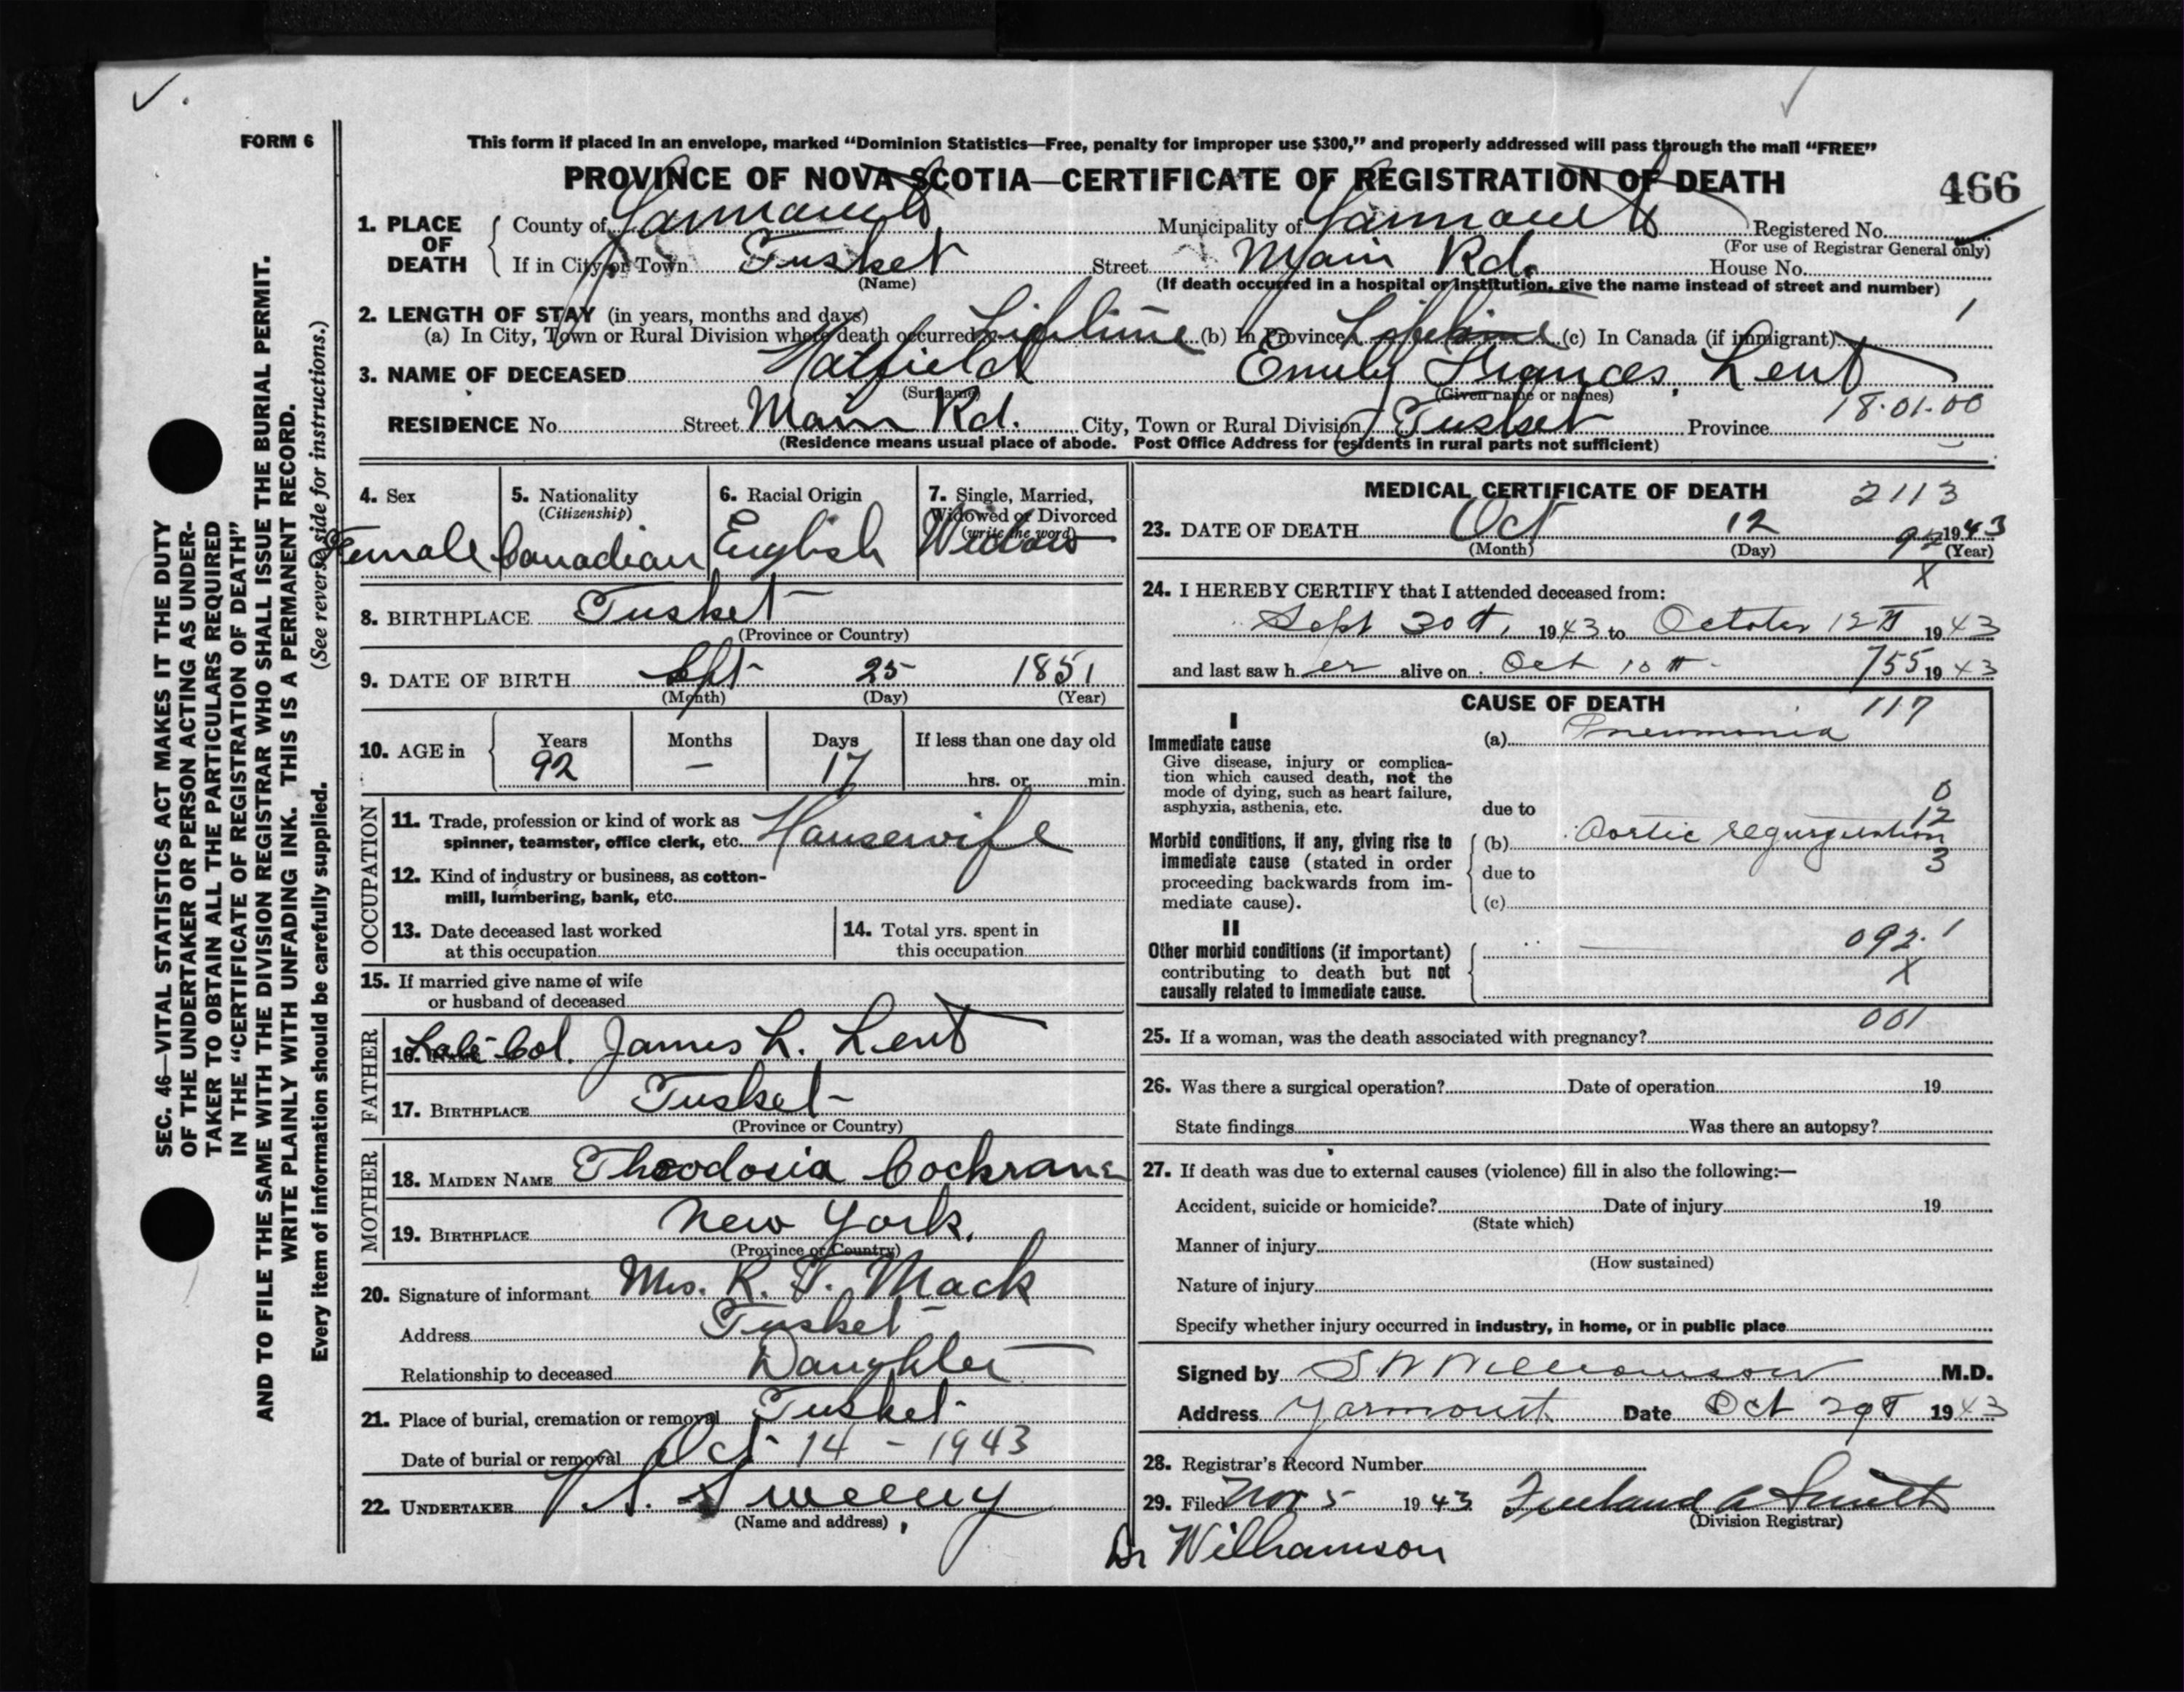 FORM 6
This form if placed in an envelope, marked “Dominion Statistics—Free, penalty for improper use $300,” and properly addressed will pass through the mail “FREE”
PROVINCE OF NOVA SCOTIA—CERTIFICATE OF REGISTRATION OF DEATH
466
1. PLACE OF DEATH { County of Yarmouth Municipality of Yarmouth Registered No.
(For use of Registrar General only)
If in City or Town Tusket Street Main Rd. House No.
(Name) (If death occurred in a hospital or institution, give the name instead of street and number)
2. LENGTH OF STAY (in years, months and days)
1
(a) In City, Town or Rural Division where death occurred Lifetime (b) In Province Lifetime (c) In Canada (if immigrant)
3. NAME OF DECEASED Hatfield Emily Frances Lent
(Surname) (Given name or names)
18.01.00
RESIDENCE No. Street Main Rd. City, Town or Rural Division Tusket Province
(Residence means usual place of abode. Post Office Address for residents in rural parts not sufficient)
4. Sex
Female
5. Nationality
(Citizenship)
Canadian
6. Racial Origin
English
7. Single, Married,
Widowed or Divorced
(write the word)
Widow
8. BIRTHPLACE Tusket
(Province or Country)
9. DATE OF BIRTH Sept 25 1851
(Month) (Day) (Year)
10. AGE in { Years Months Days If less than one day old
92 — 17 hrs. or min.
OCCUPATION
11. Trade, profession or kind of work as
spinner, teamster, office clerk, etc. Housewife
12. Kind of industry or business, as cotton-
mill, lumbering, bank, etc.
13. Date deceased last worked
at this occupation
14. Total yrs. spent in
this occupation
15. If married give name of wife
or husband of deceased
FATHER
16. Late Col. James L. Lent
17. BIRTHPLACE Tusket
(Province or Country)
MOTHER
18. MAIDEN NAME Theodosia Cockrane
19. BIRTHPLACE New York.
(Province or Country)
20. Signature of informant Mrs. R. T. Mack
Address Tusket
Relationship to deceased Daughter
21. Place of burial, cremation or removal Tusket
Date of burial or removal Oct 14 - 1943
22. UNDERTAKER V. S. Sweeny
(Name and address)
MEDICAL CERTIFICATE OF DEATH 2113
23. DATE OF DEATH Oct 12 1943
(Month) (Day) (Year)
92
X
24. I HEREBY CERTIFY that I attended deceased from:
Sept 30th, 1943 to October 12th 1943
and last saw her alive on Oct 10th 1943
755
CAUSE OF DEATH 117
I
Immediate cause
Give disease, injury or complica-
tion which caused death, not the
mode of dying, such as heart failure,
asphyxia, asthenia, etc.
(a) Pneumonia
due to
0
12
3
Morbid conditions, if any, giving rise to
immediate cause (stated in order
proceeding backwards from im-
mediate cause).
(b) Aortic regurgitation
due to
(c)
II
Other morbid conditions (if important)
contributing to death but not
causally related to immediate cause.
092.1
X
001
25. If a woman, was the death associated with pregnancy?
26. Was there a surgical operation? Date of operation 19
State findings Was there an autopsy?
27. If death was due to external causes (violence) fill in also the following:—
Accident, suicide or homicide? Date of injury 19
(State which)
Manner of injury
(How sustained)
Nature of injury
Specify whether injury occurred in industry, in home, or in public place
Signed by S W Williamson M.D.
Address Yarmouth Date Oct 29th 1943
28. Registrar's Record Number
29. Filed Nov 5 1943 Freeland A Smith
(Division Registrar)
Dr Williamson
SEC. 46—VITAL STATISTICS ACT MAKES IT THE DUTY
OF THE UNDERTAKER OR PERSON ACTING AS UNDER-
TAKER TO OBTAIN ALL THE PARTICULARS REQUIRED
IN THE “CERTIFICATE OF REGISTRATION OF DEATH”
AND TO FILE THE SAME WITH THE DIVISION REGISTRAR WHO SHALL ISSUE THE BURIAL PERMIT.
WRITE PLAINLY WITH UNFADING INK. THIS IS A PERMANENT RECORD.
Every item of information should be carefully supplied. (See reverse side for instructions.)